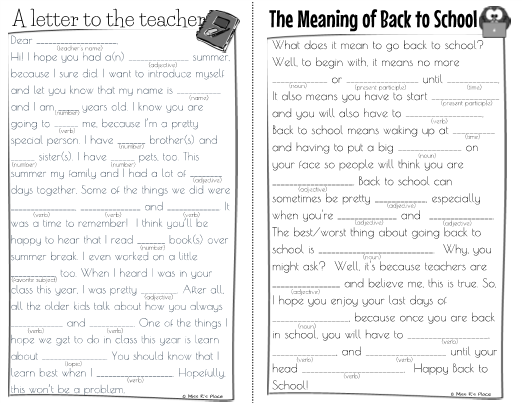 A letter to the teacher
Dear ____________,
(teacher's name)
Hi! I hope you had a(n) ____________ summer,
(adjective)
because I sure did. I want to introduce myself
and let you know that my name is ________
(name)
and I am ____ years old. I know you are
(number)
going to ____ me, because I'm a pretty
(verb)
special person. I have ____ brother(s) and
(number)
____ sister(s). I have ____ pets, too. This
(number) (number)
summer my family and I had a lot of ______
(adjective)
days together. Some of the things we did were
________ ________ and ________. It
(verb) (verb) (verb)
was a time to remember! I think you'll be
happy to hear that I read ____ book(s) over
(number)
summer break. I even worked on a little
________ too. When I heard I was in your
(favorite subject)
class this year, I was pretty ______. After all,
(adjective)
all the older kids talk about how you always
________ and ________. One of the things I
(verb) (verb)
hope we get to do in class this year is learn
about __________. You should know that I
(topic)
learn best when I ____________. Hopefully,
(verb)
this won't be a problem.
© Miss K's Place
The Meaning of Back to School
What does it mean to go back to school?
Well, to begin with, it means no more
________ or __________ until ______.
(noun) (present participle) (time)
It also means you have to start __________
(present participle)
and you will also have to ____________.
(verb)
Back to school means waking up at ______
(time)
and having to put a big __________ on
(noun)
your face so people will think you are
____________. Back to school can
(adjective)
sometimes be pretty ________, especially
(adjective)
when you're ________ and ________.
(adjective) (adjective)
The best/worst thing about going back to
school is ________________. Why, you
(noun)
might ask? Well, it's because teachers are
____________ and believe me, this is true. So,
(adjective)
I hope you enjoy your last days of
____________, because once you are back
(noun)
in school, you will have to ____________,
(verb)
__________ and ________ until your
(verb) (verb)
head ____________. Happy Back to
(verb)
School!
© Miss K's Place